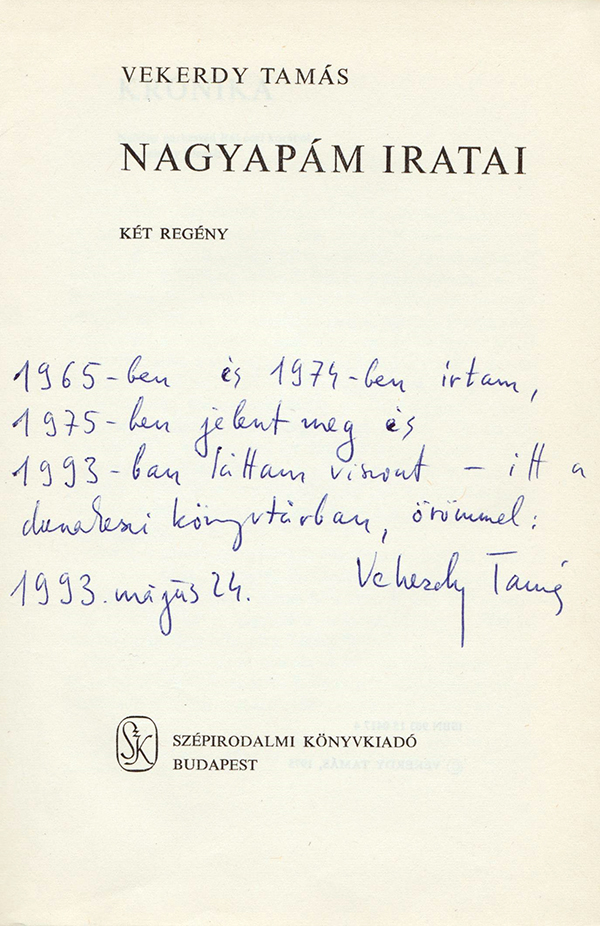 VEKERDY TAMÁS
NAGYAPÁM IRATAI
KÉT REGÉNY
1965-ben és 1974-ben írtam,
1975-ben jelent meg és
1993-ban láttam viszont – itt a
dunakeszi könyvtárban, örömmel:
1993. május 24. Vekerdy Tamás
SZK
SZÉPIRODALMI KÖNYVKIADÓ
BUDAPEST